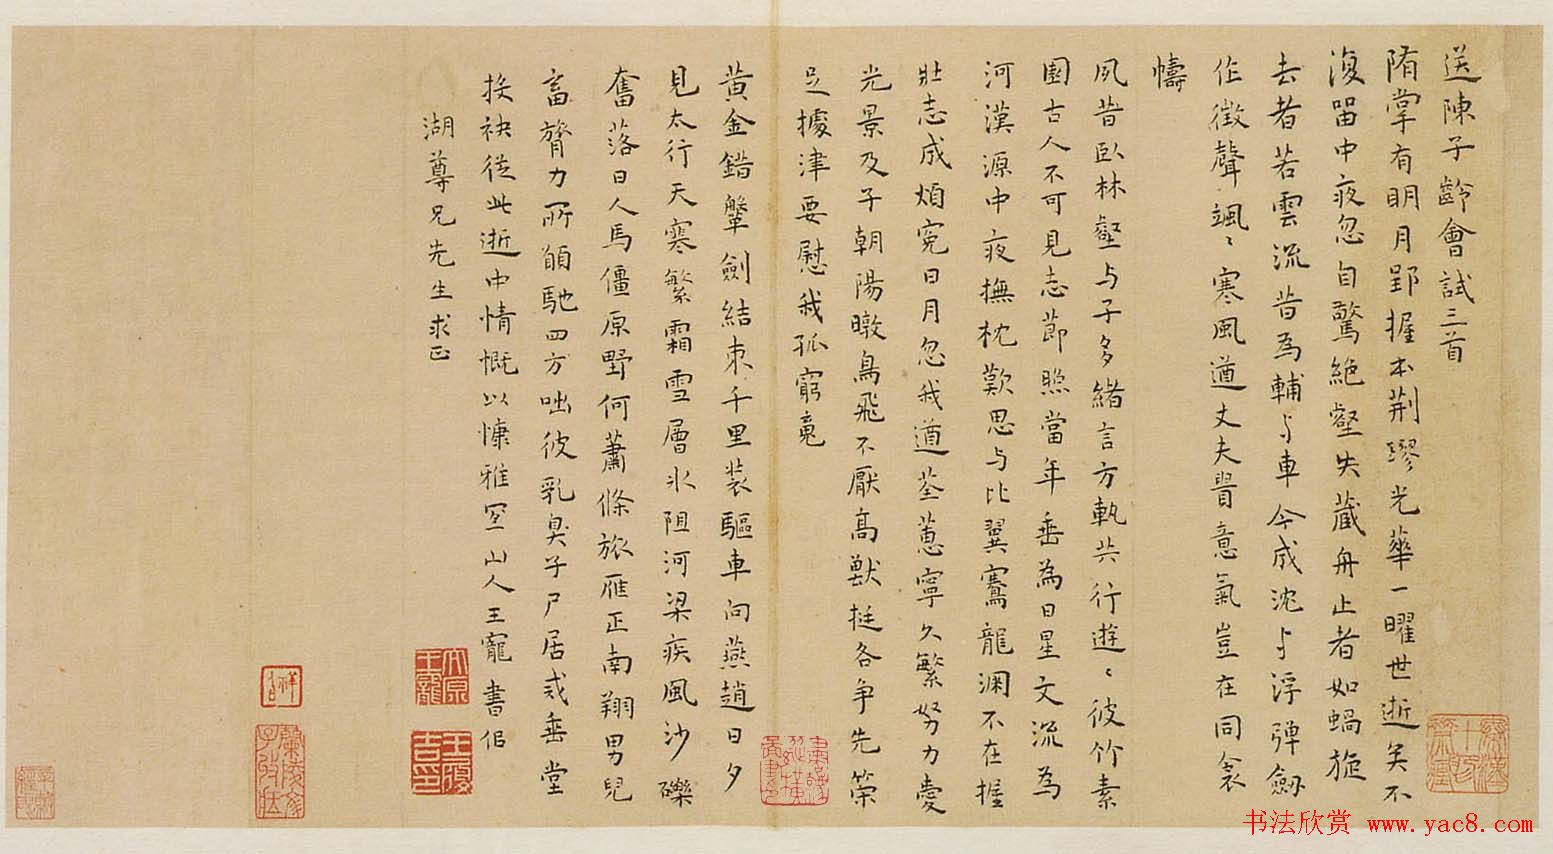 送陳子齡會試三首
隋掌有明月郢握本荆璆光華一曜世逝矣不
復留中夜忽自驚絶壑失藏舟止者如蝸旋
去者若雲流昔為輔与車今成沈与浮彈劔
作徵聲颯〻寒風遒丈夫貴意氣豈在同衾
幬
夙昔臥林壑与子多緒言方軌共行遊〻彼竹素
園古人不可見志節照當年垂為日星文流為
河漢源中夜撫枕歎思与比翼騫龍淵不在握
壯志成煩寃日月忽我遒荃蕙寧久繁努力愛
光景及子朝陽暾鳥飛不厭高獸挺各争先榮
足據津要慰我孤窮
黄金錯鞶劍結束千里装驅車向燕趙日夕
見太行天寒繁霜雪層氷阻河梁疾風沙礫
奮落日人馬僵原野何蕭條旅雁正南翔男兒
畜膂力所頋馳四方咄彼乳臭子尸居戒垂堂
接袂從此逝中情慨以慷雅宜山人王寵書侣
湖尊兄先生求正
太原王寵
王履吉印
祥
书法欣赏 www.yac8.com